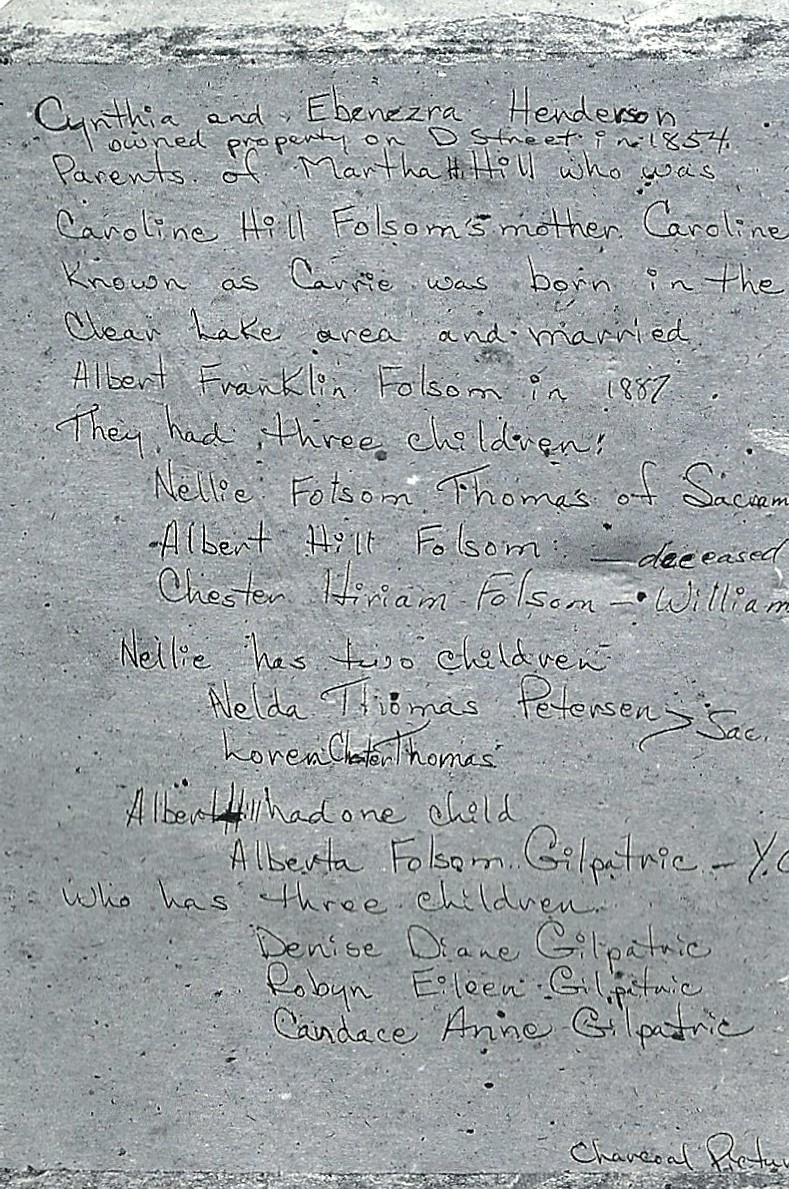 Cynthia and Ebenezra Henderson
owned property on D Street in 1854.
Parents of Martha H Hill who was
Caroline Hill Folsom's mother. Caroline
Known as Carrie was born in the
Clear Lake area and married
Albert Franklin Folsom in 1887.
They had three children:
Nellie Folsom Thomas of Sacram
Albert Hill Folsom - deceased
Chester Hiriam Folsom - William
Nellie has two children
Nelda Thomas Petersen > Sac.
Loren Chester Thomas
Albert Hill had one child
Alberta Folsom Gilpatric - Y.C
who has three children.
Denise Diane Gilpatric
Robyn Eileen Gilpatric
Candace Anne Gilpatric
Charcoal Pictur